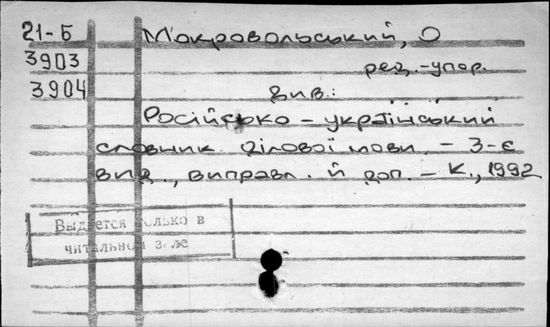 21-Б
М'окровольський, О
3903
3904
ред.-упор.
див.:
Російсько-український
словник ділової мови. - 3-є
вид., виправл. й доп. - К., 1992
Выдается только в
читальном зале